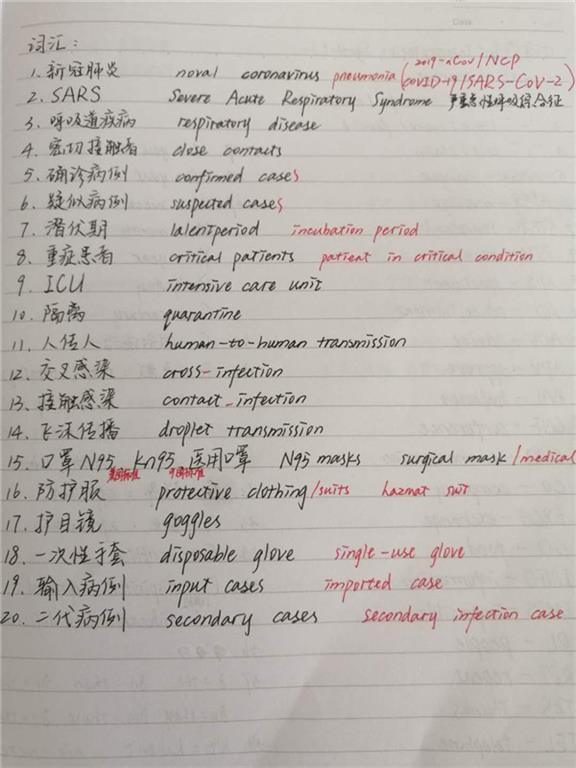 词汇:
2019-nCov/NCP
1. 新冠肺炎 noval coronavirus pneumonia (COVID-19/SARS-CoV-2)
2. SARS Severe Acute Respiratory Syndrome 严重急性呼吸综合征
3. 呼吸道疾病 respiratory disease
4. 密切接触者 close contacts
5. 确诊病例 confirmed cases
6. 疑似病例 suspected cases
7. 潜伏期 latentperiod incubation period
8. 重症患者 critical patients patient in critical condition
9. ICU intensive care unit
10. 隔离 quarantine
11. 人传人 human-to-human transmission
12. 交叉感染 cross-infection
13. 接触感染 contact-infection
14. 飞沫传播 droplet transmission
15. 口罩 N95 kn95 医用口罩 N95 masks surgical mask/medical
美国标准 中国标准
16. 防护服 protective clothing/suits hazmat suit
17. 护目镜 goggles
18. 一次性手套 disposable glove single-use glove
19. 输入病例 input cases imported case
20. 二代病例 secondary cases secondary infection case